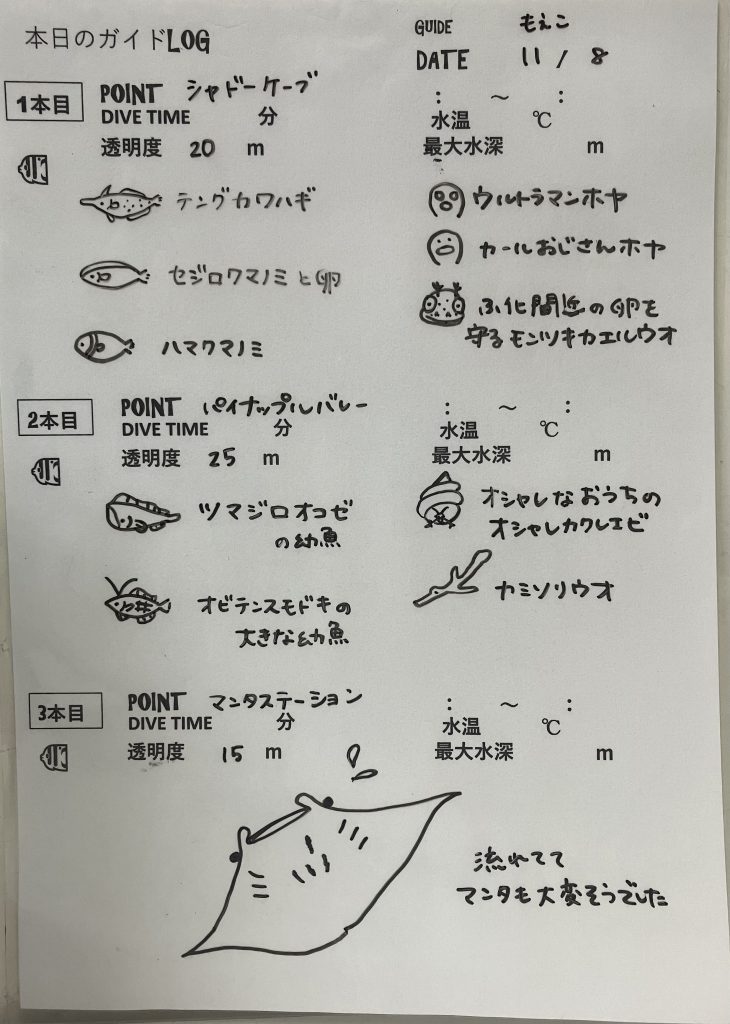 本日のガイドLOG
GUIDE もえこ
DATE 11 / 8
1本目 POINT シャドーケーブ : ～ :
DIVE TIME 分 水温 ℃
透明度 20 m 最大水深 m
テングカワハギ
セジロクマノミと卵
ハマクマノミ
ウルトラマンホヤ
カールおじさんホヤ
ふ化間近の卵を
守るモンツキカエルウオ
2本目 POINT パイナップルバレー : ～ :
DIVE TIME 分 水温 ℃
透明度 25 m 最大水深 m
ツマジロオコゼ
の幼魚
オビテンスモドキの
大きな幼魚
オシャレなおうちの
オシャレカクレエビ
カミソリウオ
3本目 POINT マンタステーション : ～ :
DIVE TIME 分 水温 ℃
透明度 15 m 最大水深 m
流れてて
マンタも大変そうでした